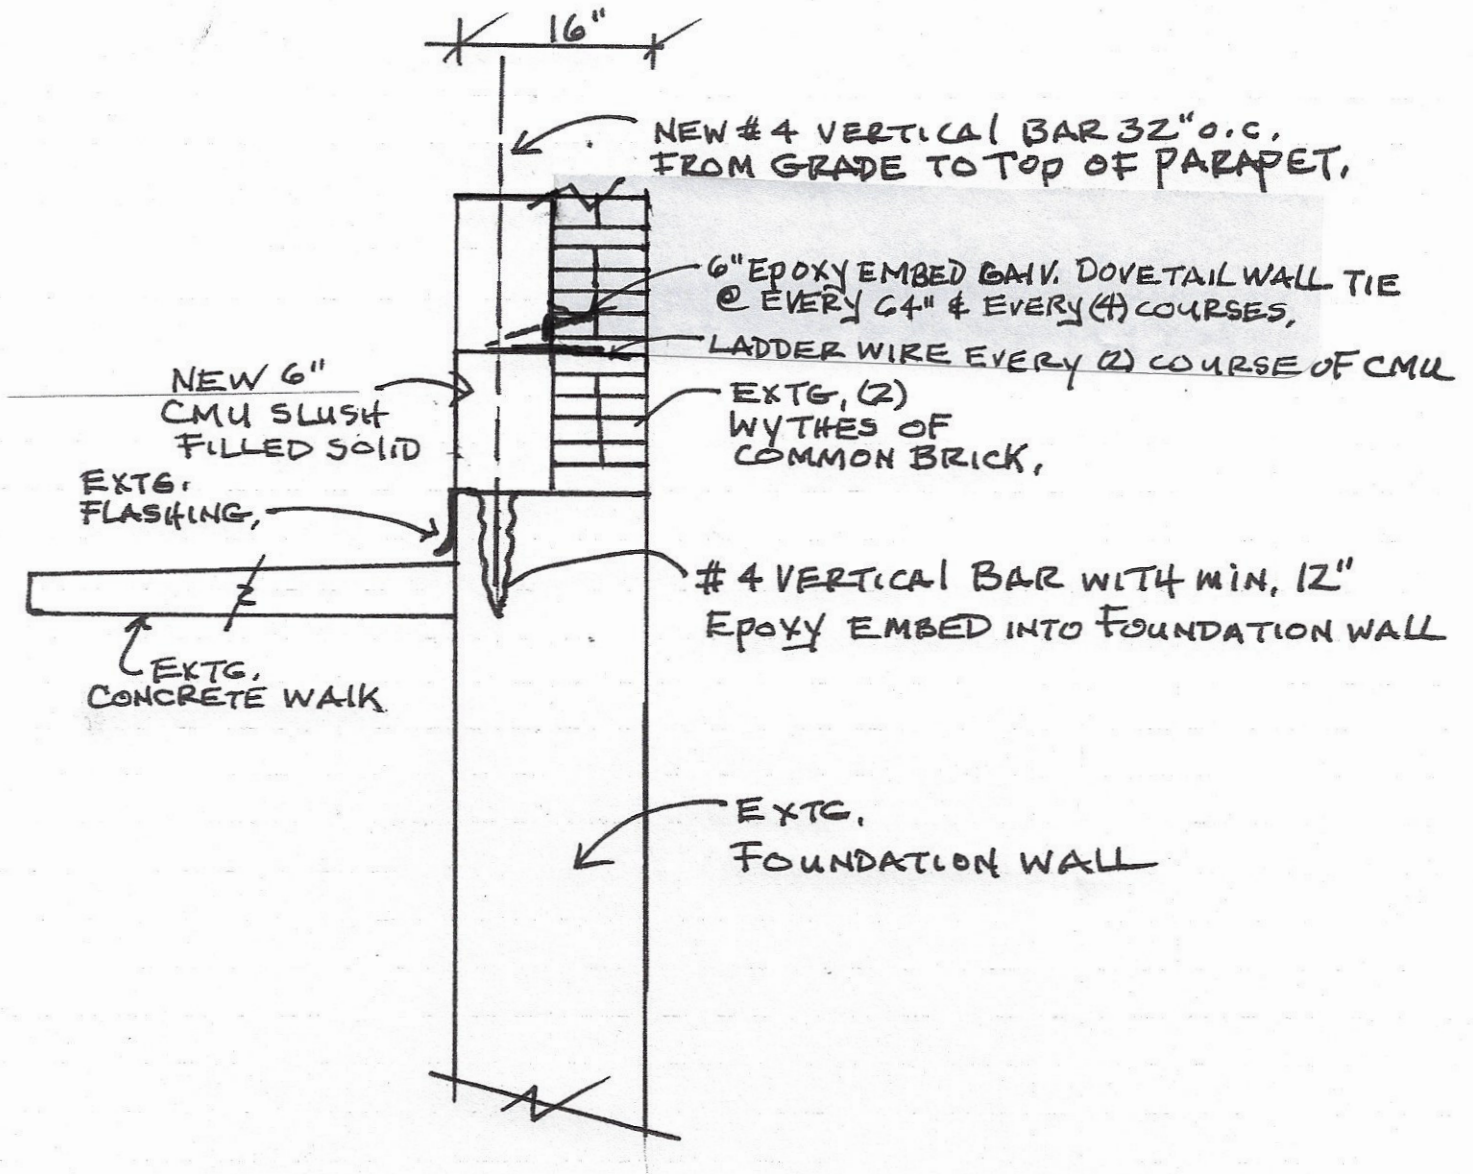 16"
NEW #4 VERTICAL BAR 32" O.C.
FROM GRADE TO TOP OF PARAPET.
6" EPOXY EMBED GALV. DOVETAIL WALL TIE
@ EVERY 64" & EVERY (4) COURSES.
LADDER WIRE EVERY (2) COURSE OF CMU
NEW 6"
CMU SLUSH
FILLED SOLID
EXTG. (2)
WYTHES OF
COMMON BRICK.
EXTG.
FLASHING.
#4 VERTICAL BAR WITH MIN. 12"
EPOXY EMBED INTO FOUNDATION WALL
EXTG.
CONCRETE WALK
EXTG.
FOUNDATION WALL